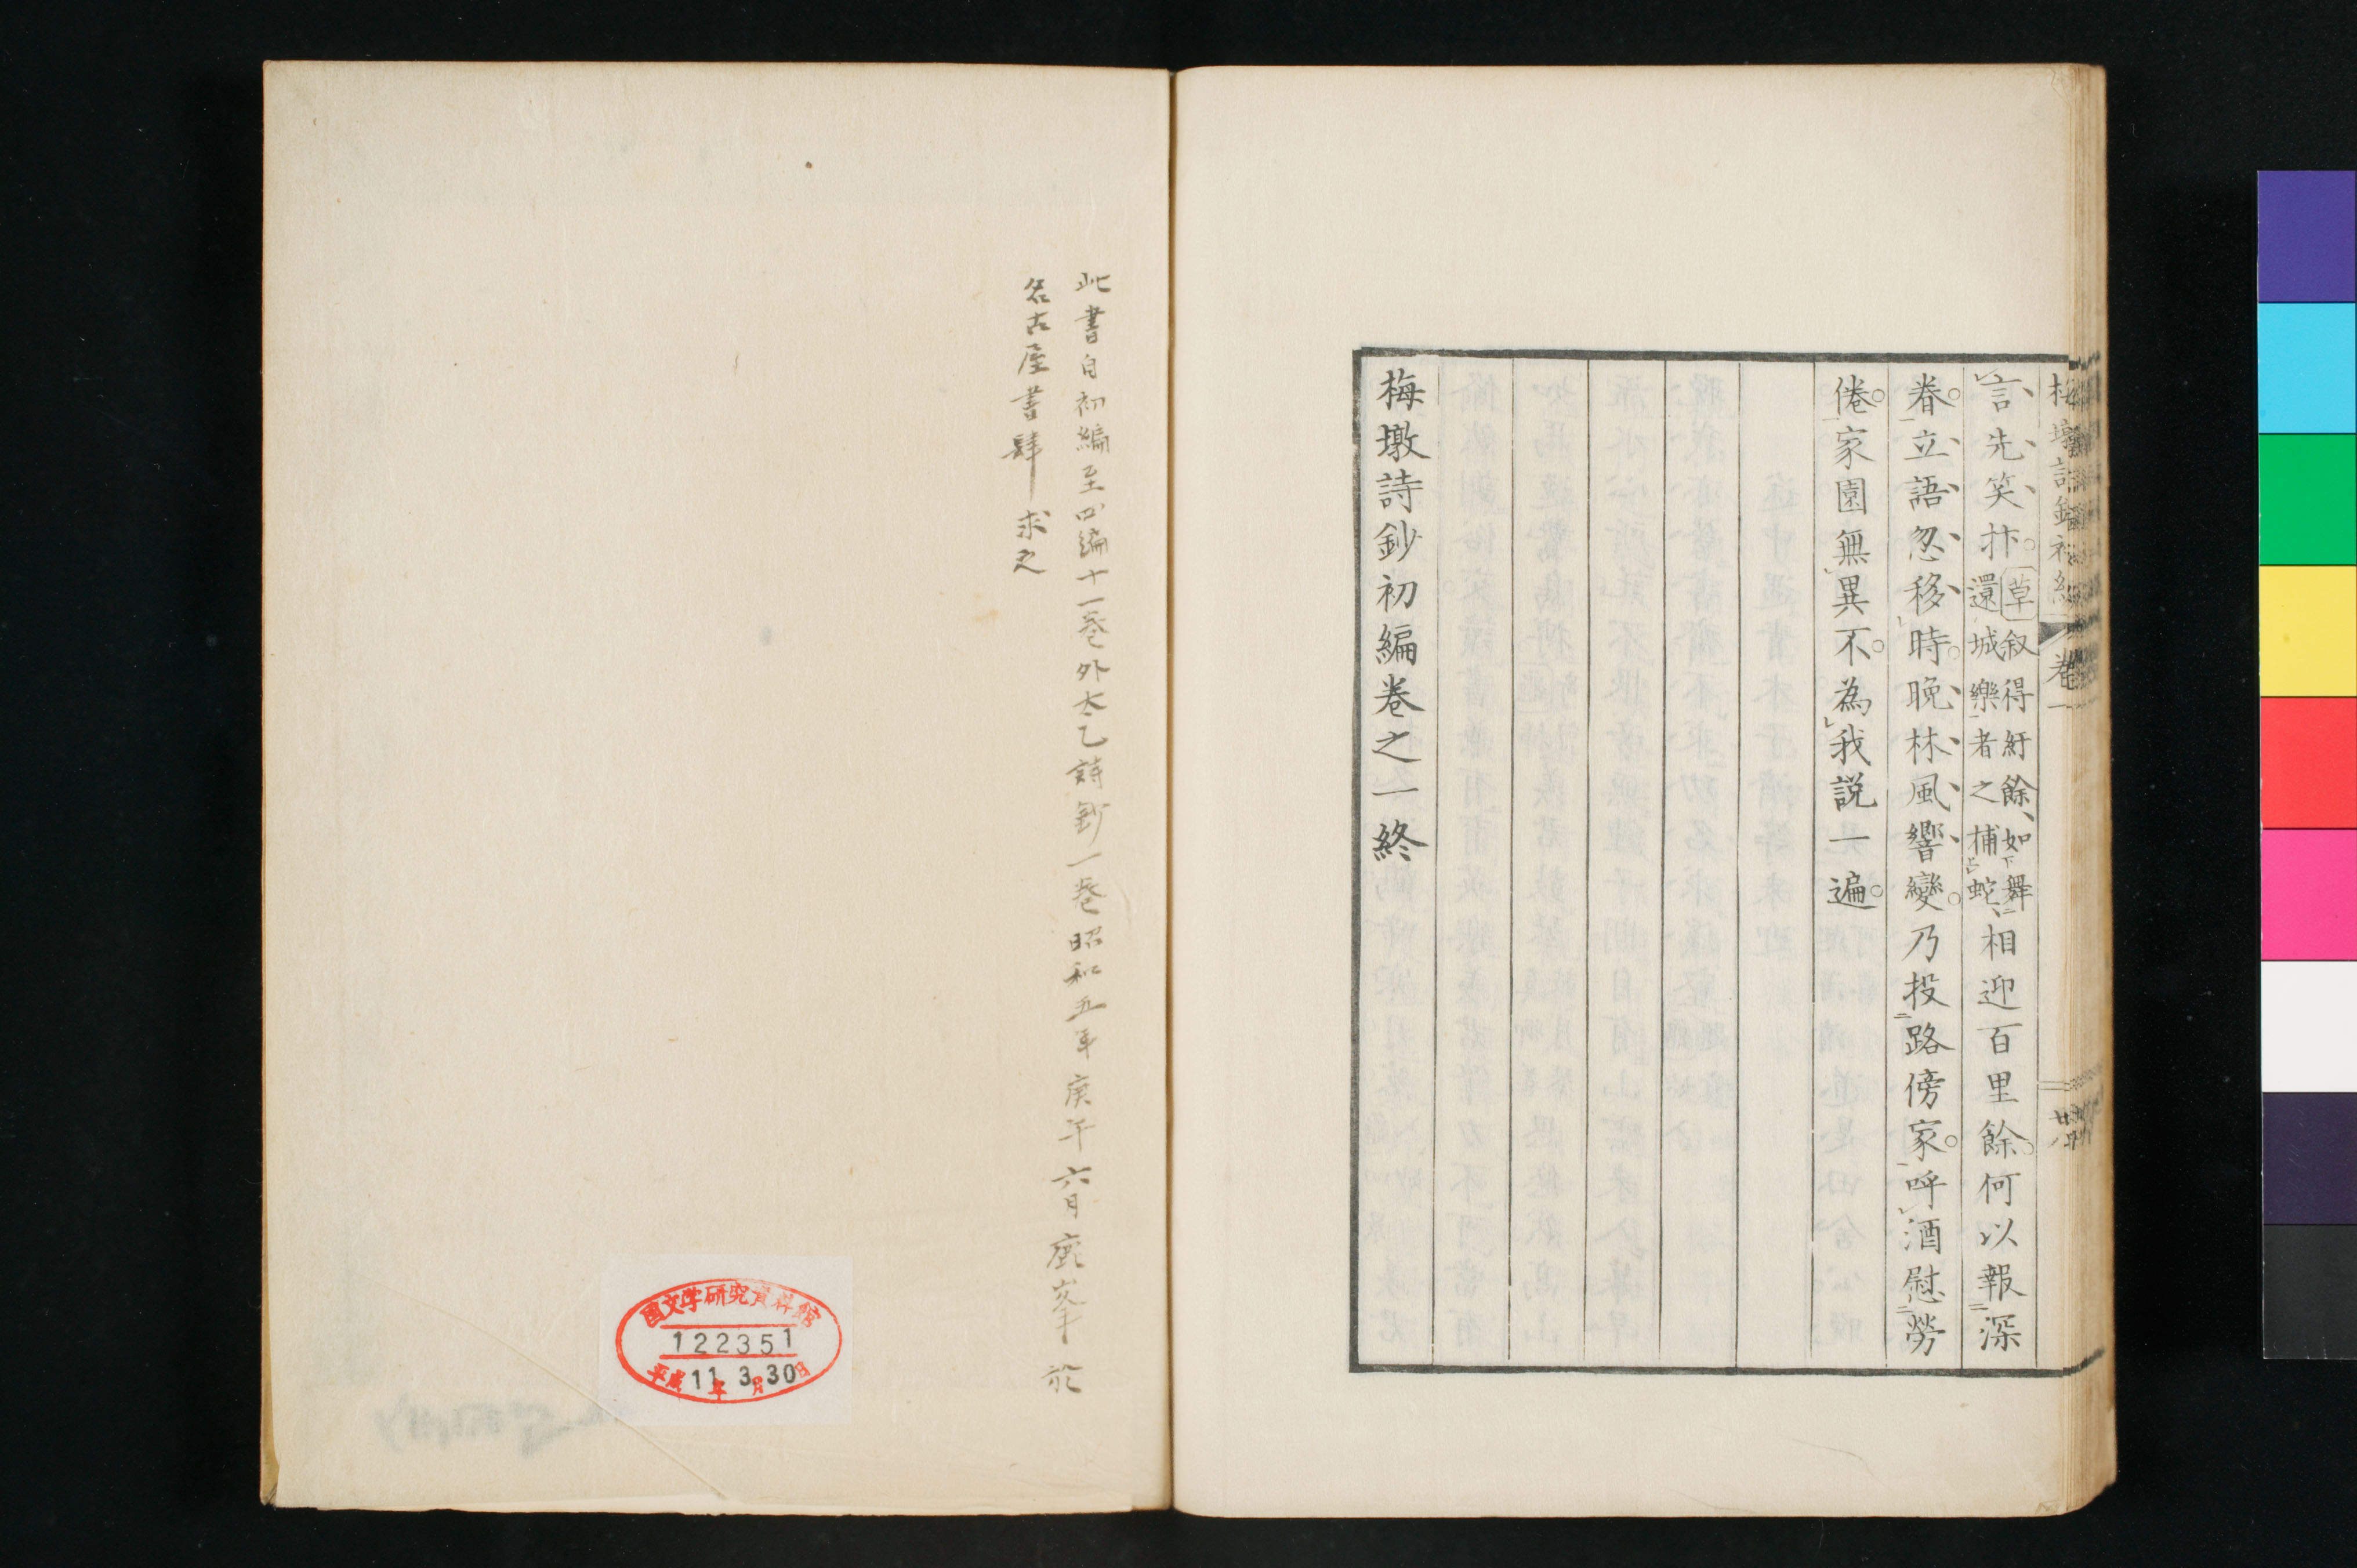 言先笑抃
草叙得紆餘如舞
還城樂者之捕蛇
相迎百里餘何以報深
眷立語忽移時晩林風響變乃投路傍家呼酒慰勞
倦家園無異不為我説一遍
梅墩詩鈔初編卷之一終
此書自初編至四編十一卷外太乙詩鈔一卷昭和五年庚午六月鹿峯於
名古屋書肆求之
國文学研究資料館
122351
平成11年3月30日